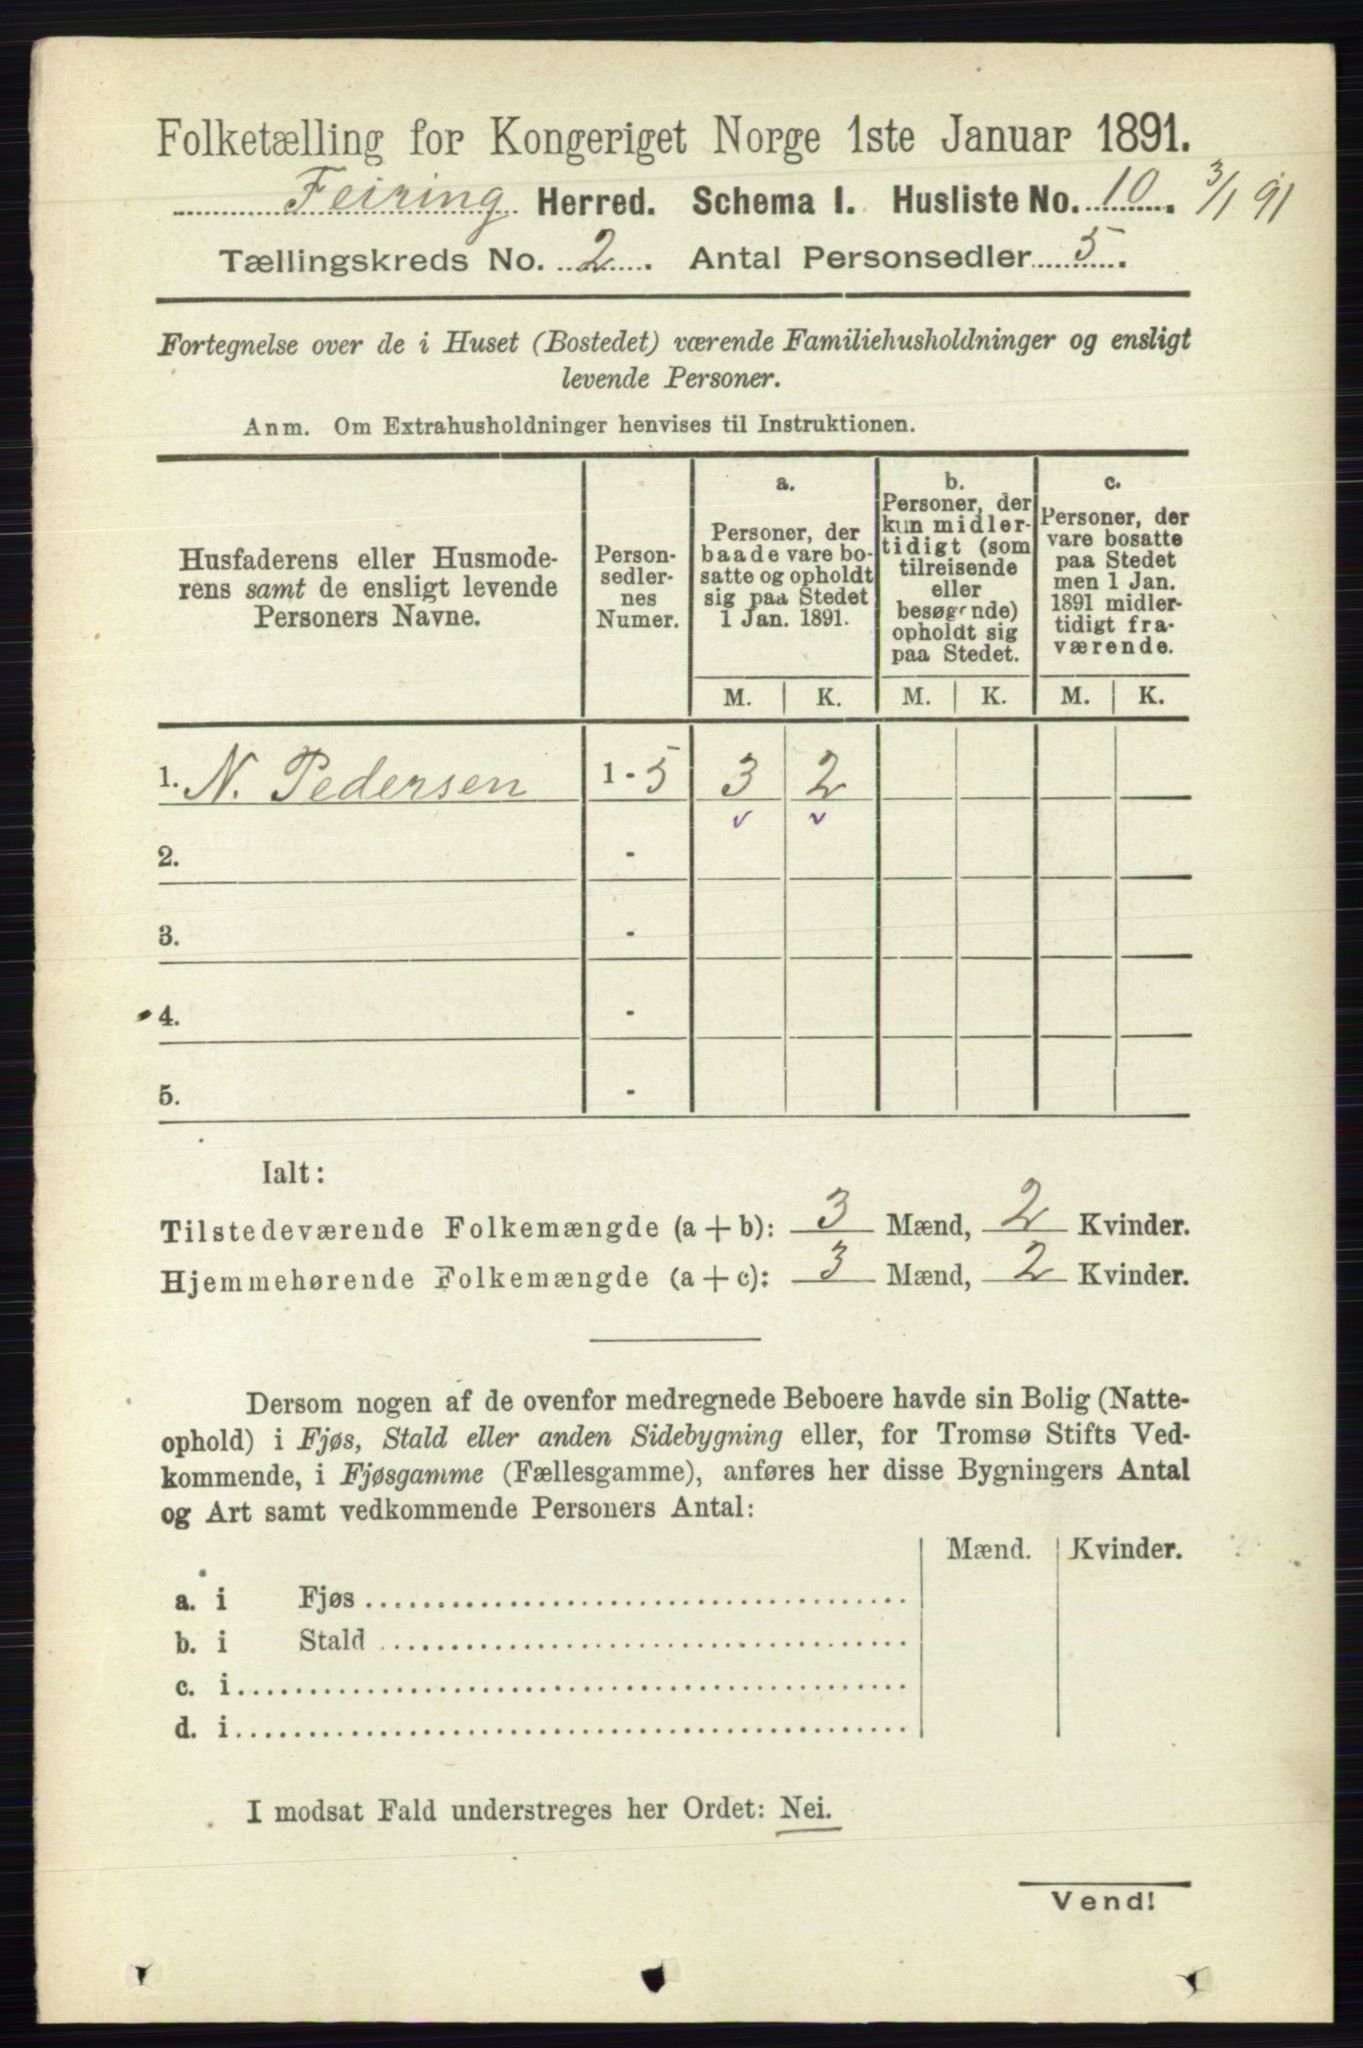 Folketælling for Kongeriget Norge 1ste Januar 1891.
Feiring Herred. Schema 1. Husliste No. 10. 3/1 91
Tællingskreds No. 2. Antal Personsedler 5.
Fortegnelse over de i Huset (Bostedet) værende Familiehusholdninger og ensligt
levende Personer.
Anm. Om Extrahusholdninger henvises til Instruktionen.
Husfaderens eller Husmode-
rens samt de ensligt levende
Personers Navne.
Person-
sedler-
nes
Numer.
a.
Personer, der
baade vare bo-
satte og opholdt
sig paa Stedet
1 Jan. 1891.
b.
Personer, der
kun midler-
tidigt (som
tilreisende
eller
besøgende)
opholdt sig
paa Stedet.
c.
Personer, der
vare bosatte
paa Stedet
men 1 Jan.
1891 midler-
tidigt fra-
værende.
M. K. M. K. M. K.
1. N. Pedersen 1 - 5 3 2
2. -
3. -
4. -
5. -
Ialt:
Tilstedeværende Folkemængde (a + b): 3 Mænd, 2 Kvinder.
Hjemmehørende Folkemængde (a + c): 3 Mænd, 2 Kvinder.
Dersom nogen af de ovenfor medregnede Beboere havde sin Bolig (Natte-
ophold) i Fjøs, Stald eller anden Sidebygning eller, for Tromsø Stifts Ved-
kommende, i Fjøsgamme (Fællesgamme), anføres her disse Bygningers Antal
og Art samt vedkommende Personers Antal:
Mænd. Kvinder.
a. i Fjøs
b. i Stald
c. i
d. i
I modsat Fald understreges her Ordet: Nei.
Vend!